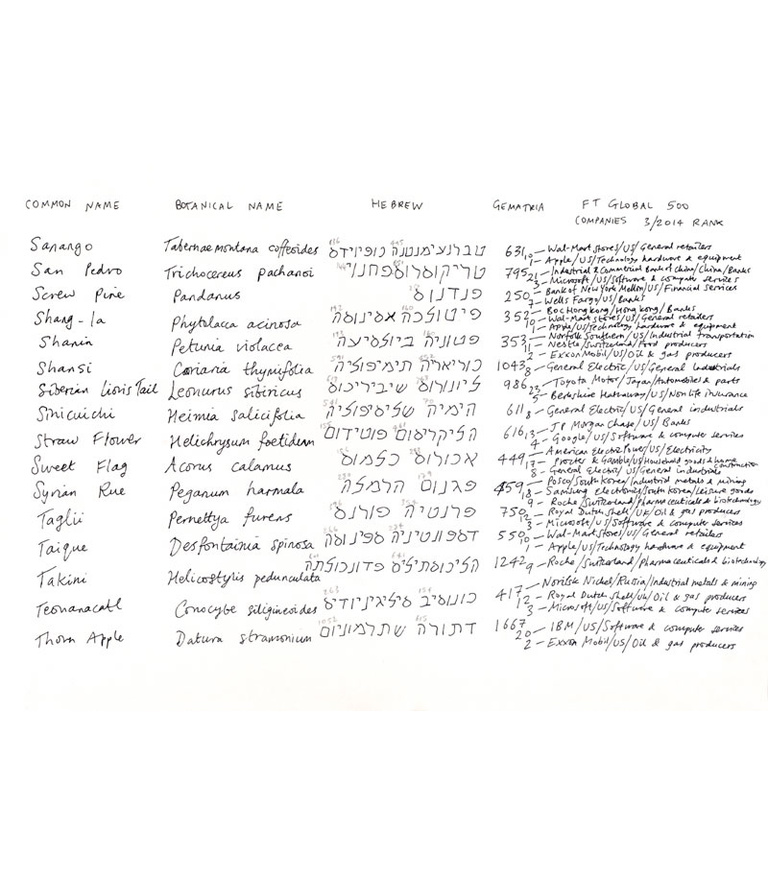 COMMON NAME BOTANICAL NAME HEBREW GEMATRIA FT GLOBAL 500
COMPANIES 3/2014 RANK
Sanango Tabernaemontana coffeoides טברנעימנטנה כופיוידס 631 10 – Wal-Mart Stores/US/General retailers
1 – Apple/US/Technology hardware & equipment
San Pedro Trichocereus pachanoi טריקוסרוס פחנוי 795 21 – Industrial & Commercial Bank of China/China/Banks
3 – Microsoft/US/Software & computer services
Screw Pine Pandanus פנדנוס 250 – Bank of New York Mellon/US/Financial services
7 – Wells Fargo/US/Banks
Shang-la Phytolacca acinosa פיטולכה אסינוסה 352 – Boc Hong Kong/Hong Kong/Banks
10 – Wal-Mart Stores/US/General retailers
1 – Apple/US/Technology hardware & equipment
Shanin Petunia violacea פטוניה 353 – Norfolk Southern/US/Industrial transportation
Nestle/Switzerland/Food producers
2 – Exxon Mobil/US/Oil & gas producers
Shansi Coriaria thymifolia כוריאריה תימיפוליה 1043 8 – General Electric/US/General Industrials
Siberian Lions Tail Leonurus sibiricus ליונורוס שיביריכוס 986 23 – Toyota Motor/Japan/Automobiles & parts
5 – Berkshire Hathaway/US/Non life insurance
Sinicuichi Heimia salicifolia הימיה שליסיפוליה 611 8 – General Electric/US/General industrials
Straw Flower Helichrysum foetidum הליקריסום פוטידום 616 13 – JP Morgan Chase/US/Banks
4 – Google/US/Software & computer services
Sweet Flag Acorus calamus אכורוס כלמוס 449 – American Electric Power/US/Electricity
17 – Procter & Gamble/US/Household goods & home construction
8 – General Electric/US/General industrials
Syrian Rue Peganum harmala פגנום הרמלה 459 – Posco/South Korea/Industrial metals & mining
18 – Samsung Electronics/South Korea/Leisure goods
9 – Roche/Switzerland/Pharmaceuticals & biotechnology
Taglii Pernettya furens פרנטיה פורנס 750 12 – Royal Dutch Shell/UK/Oil & gas producers
3 – Microsoft/US/Software & computer services
Taique Desfontainia spinosa דספונטיניה ספינוסה 550 10 – Wal-Mart Stores/US/General retailers
1 – Apple/US/Technology hardware & equipment
Takini Helicostylis pedunculata הליכוסתיליס פדונכולתה 1242 9 – Roche/Switzerland/Pharmaceuticals & biotechnology
Teonanacatl Conocybe siligineoides כונוסיב סיליגיניודיס 417 – Norilsk Nickel/Russia/Industrial metals & mining
12 – Royal Dutch Shell/UK/Oil & gas producers
3 – Microsoft/US/Software & computer services
Thorn Apple Datura stramonium דתורה שתרמוניום 1667 20 – IBM/US/Software & computer services
2 – Exxon Mobil/US/Oil & gas producers